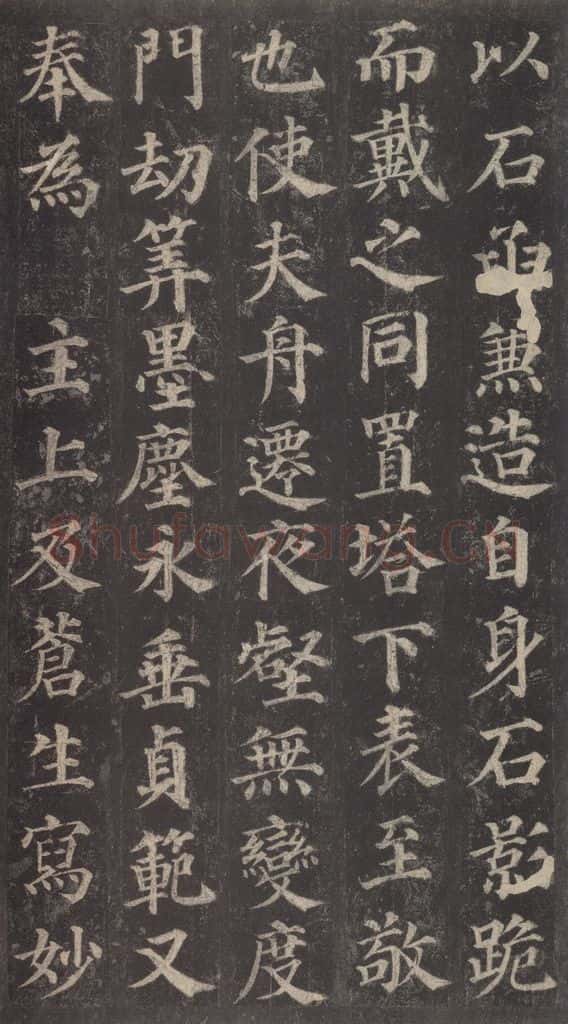 以石兼造自身石影跪
而戴之同置塔下表至敬
也使夫舟遷夜壑無變度
門劫筭墨塵永垂貞範又
奉為 主上及蒼生寫妙
Shufawang.cn